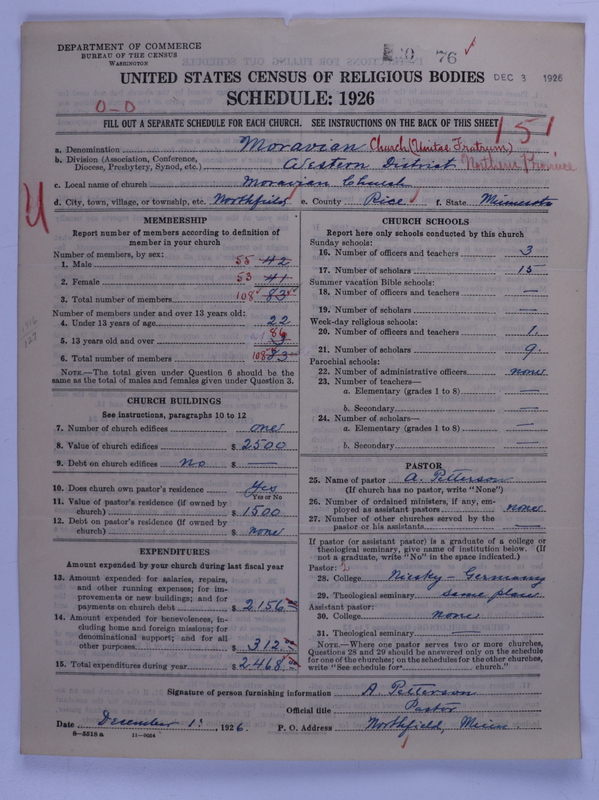 DEPARTMENT OF COMMERCE
BUREAU OF THE CENSUS
WASHINGTON
76
UNITED STATES CENSUS OF RELIGIOUS BODIES
DEC 3 1926
SCHEDULE: 1926
0-0
FILL OUT A SEPARATE SCHEDULE FOR EACH CHURCH. SEE INSTRUCTIONS ON THE BACK OF THIS SHEET
151
a. Denomination Moravian Church (Unitas Fratrum)
b. Division (Association, Conference, Diocese, Presbytery, Synod, etc.) Western District Northern Province
c. Local name of church Moravian Church
d. City, town, village, or township, etc. Northfield e. County Rice f. State Minnesota
MEMBERSHIP
Report number of members according to definition of
member in your church
Number of members, by sex:
1. Male 55 42
2. Female 53 41
3. Total number of members 108 83
Number of members under and over 13 years old:
4. Under 13 years of age 22
5. 13 years old and over 86
6. Total number of members 108 83
NOTE.—The total given under Question 6 should be the
same as the total of males and females given under Question 3.
CHURCH BUILDINGS
See instructions, paragraphs 10 to 12
7. Number of church edifices one
8. Value of church edifices $ 2500
9. Debt on church edifices no $ —
10. Does church own pastor's residence Yes
Yes or No
11. Value of pastor's residence (if owned by
church) $ 1500
12. Debt on pastor's residence (if owned by
church) $ none
EXPENDITURES
Amount expended by your church during last fiscal year
13. Amount expended for salaries, repairs,
and other running expenses; for im-
provements or new buildings; and for
payments on church debt $ 2156
14. Amount expended for benevolences, in-
cluding home and foreign missions; for
denominational support; and for all
other purposes $ 312
15. Total expenditures during year $ 2468
CHURCH SCHOOLS
Report here only schools conducted by this church
Sunday schools:
16. Number of officers and teachers 3
17. Number of scholars 15
Summer vacation Bible schools:
18. Number of officers and teachers —
19. Number of scholars —
Week-day religious schools:
20. Number of officers and teachers 1
21. Number of scholars 9
Parochial schools:
22. Number of administrative officers none
23. Number of teachers—
a. Elementary (grades 1 to 8) —
b. Secondary —
24. Number of scholars—
a. Elementary (grades 1 to 8) —
b. Secondary —
PASTOR
25. Name of pastor A. Petterson
(If church has no pastor, write "None")
26. Number of ordained ministers, if any, em-
ployed as assistant pastors none
27. Number of other churches served by the
pastor or his assistants —
If pastor (or assistant pastor) is a graduate of a college or
theological seminary, give name of institution below. (If
not a graduate, write "No" in the space indicated.)
Pastor: 2
28. College Niesky - Germany
29. Theological seminary same place
Assistant pastor:
30. College none
31. Theological seminary —
NOTE.—Where one pastor serves two or more churches,
Questions 28 and 29 should be answered only on the schedule
for one of the churches; on the schedules for the other churches,
write "See schedule for church."
Signature of person furnishing information A. Petterson
Official title Pastor
Date December 1. , 1926. P. O. Address Northfield, Minn
8-5518 a 11-9024